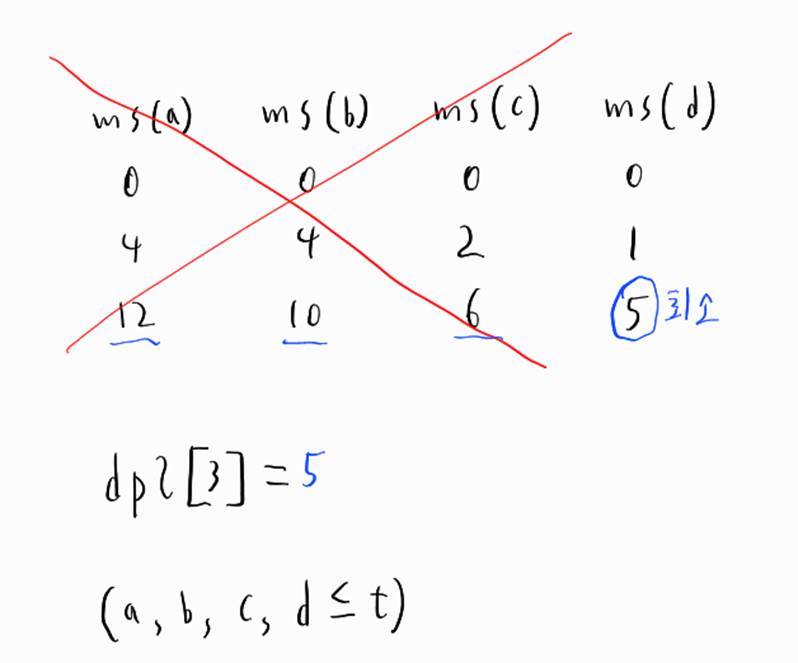 ms(a) ms(b) ms(c) ms(d)
0 0 0 0
4 4 2 1
12 10 6 5 최소
dpl[3] = 5
(a, b, c, d ≤ t)